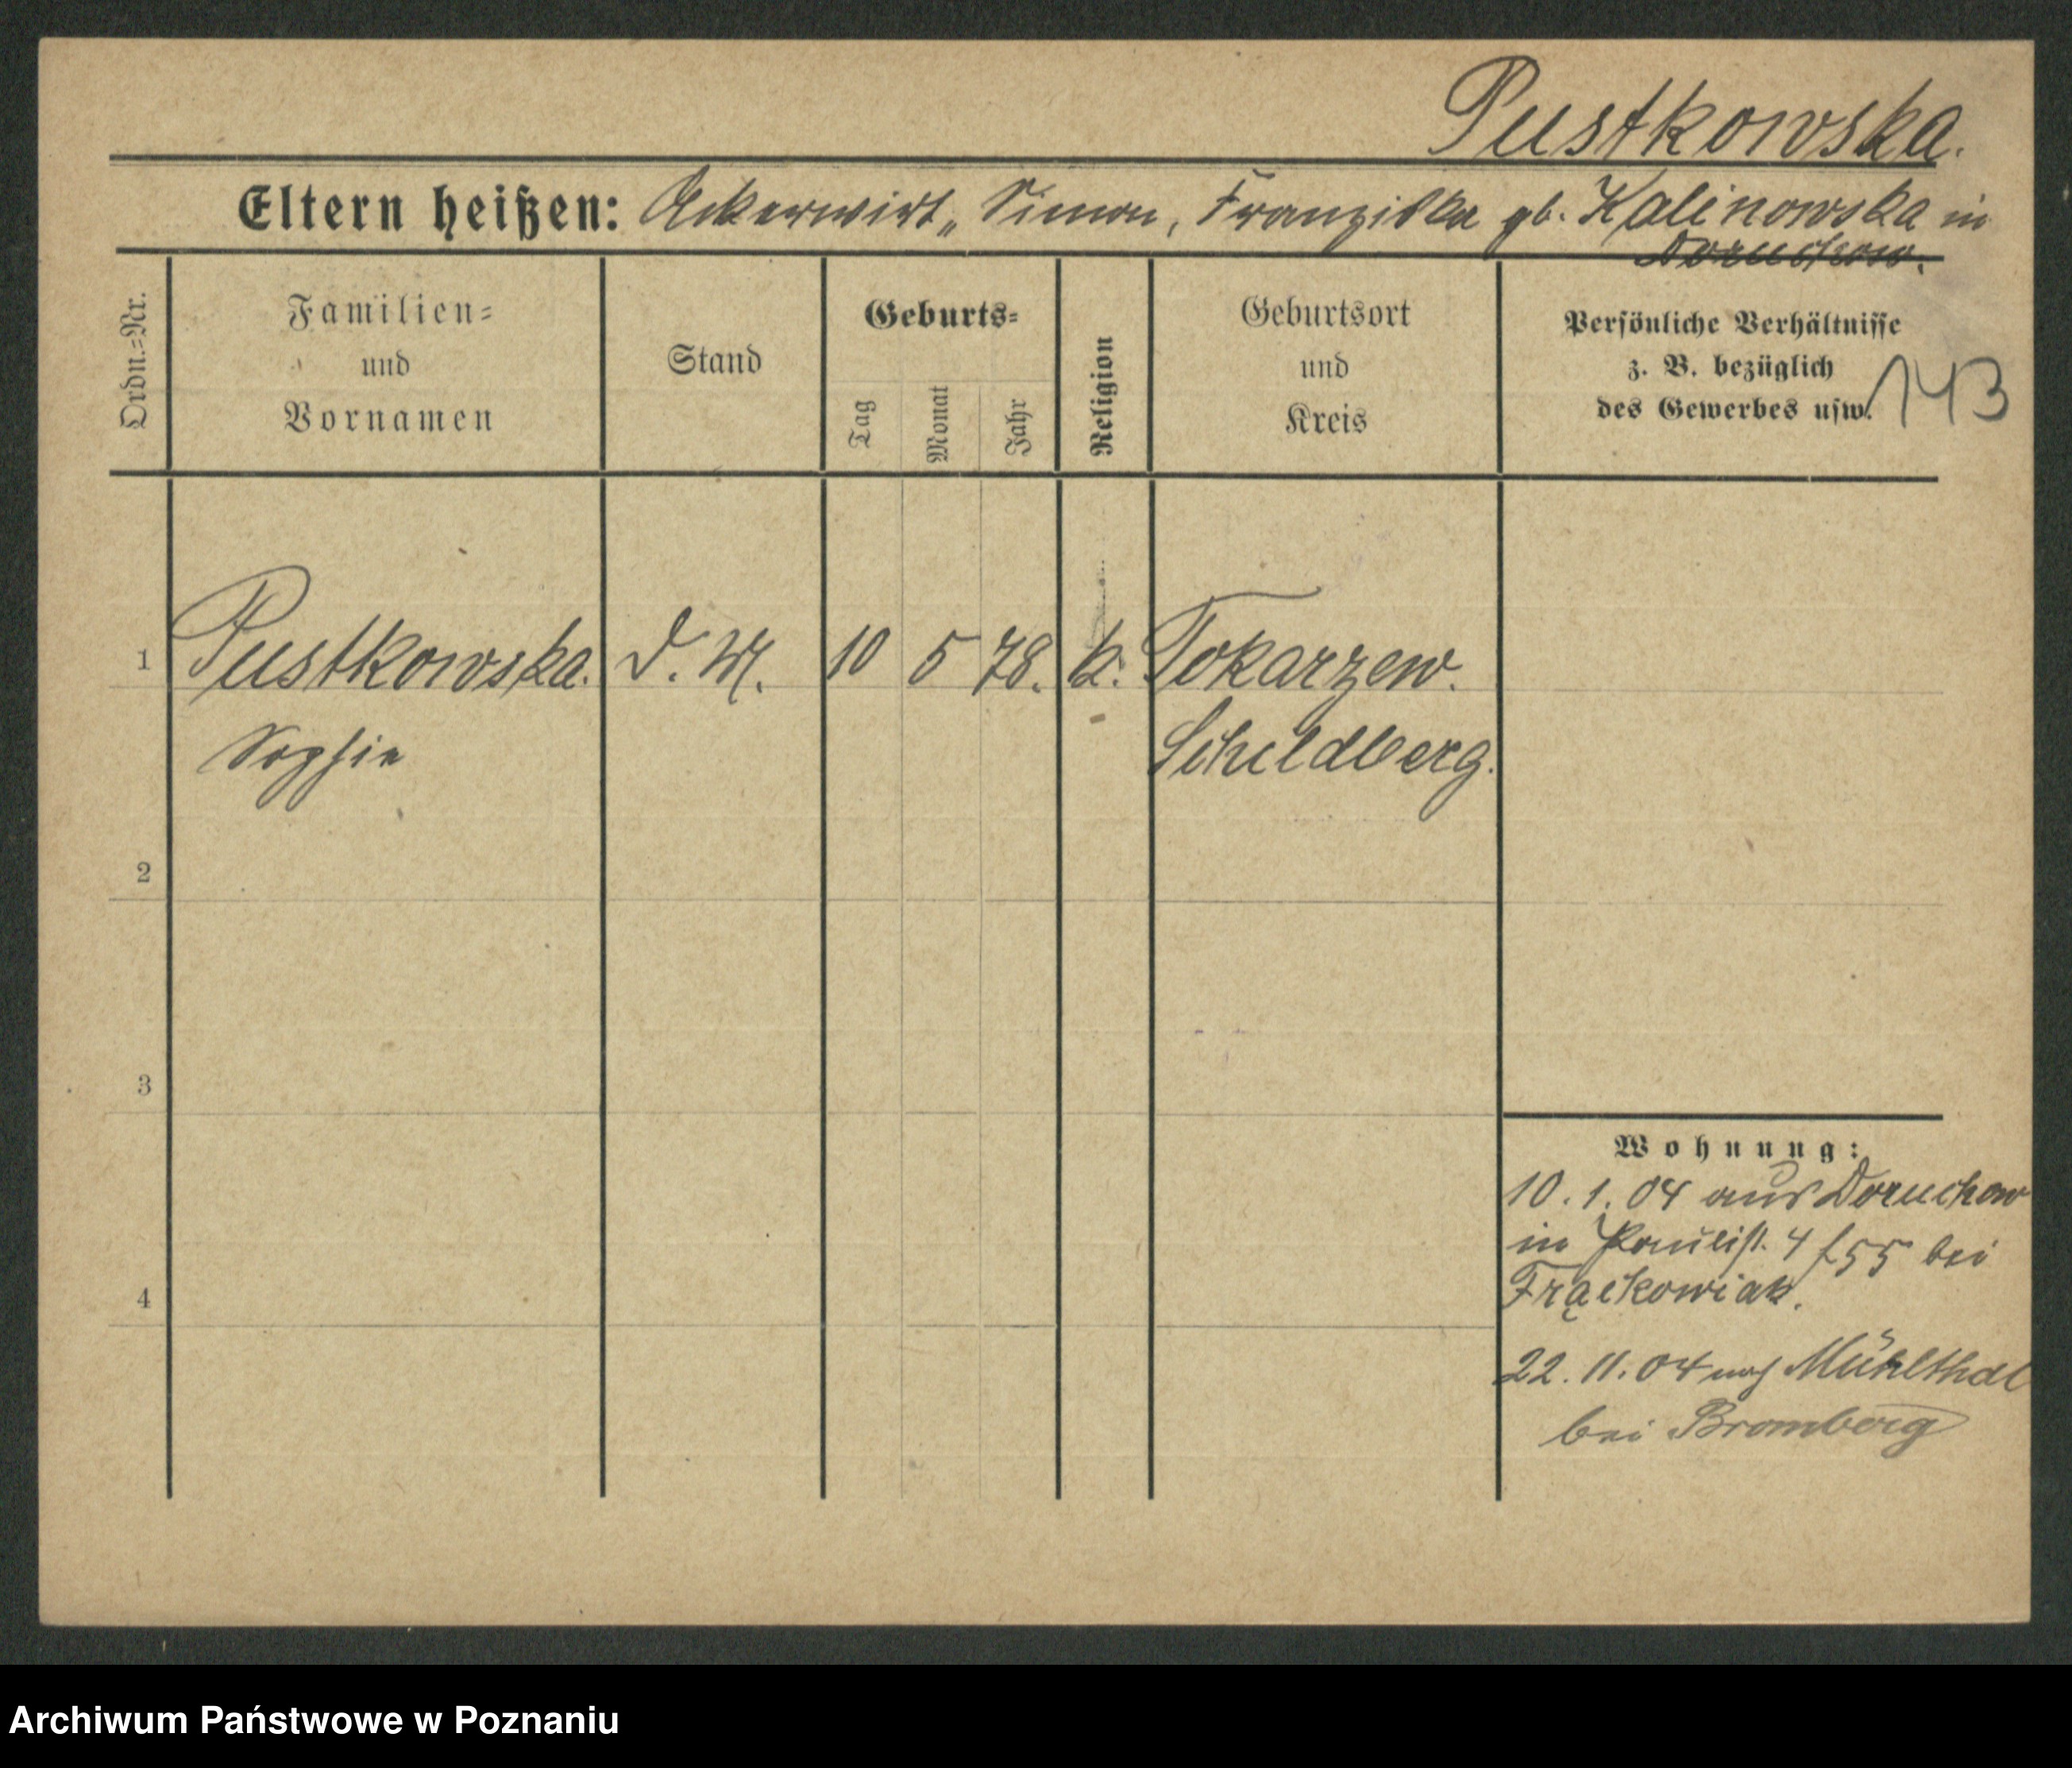 Pustkowska.
Eltern heißen: Ackerwirt „ Simon, Franziska gb. Kalinowska in
Doruchow.
Ordn.=Nr.
Familien=
und
Vornamen
Stand
Geburts=
Tag
Monat
Jahr
Religion
Geburtsort
und
Kreis
Persönliche Verhältnisse
z. B. bezüglich
des Gewerbes usw.
143
1 Pustkowska. d. M. 10 5 78. k. Tokarzew.
Sophie Schildberg.
2
3
4
Wohnung:
10. 1. 04 aus Doruchow
in Paulist. 4 f55 bei
Frąckowiak.
22. 11. 04 nach Mühlthal
bei Bromberg
Archiwum Państwowe w Poznaniu